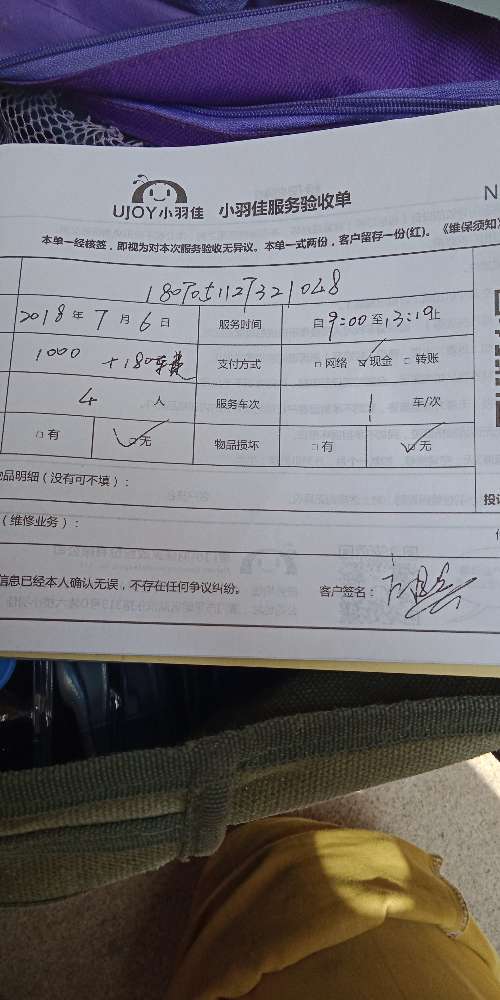 UJOY小羽佳 小羽佳服务验收单
N
本单一经核签，即视为对本次服务验收无异议。本单一式两份，客户留存一份(红)。《维保须知》
2018年7月6日 服务时间 自9:00至13:19止
1000 +180车费 支付方式 □网络 ☑现金 □转账
4 人 服务车次 1 车/次
□有 ☑无 物品损坏 □有 ☑无
品明细（没有可不填）：
投诉
（维修业务）：
信息已经本人确认无误，不存在任何争议纠纷。 客户签名：